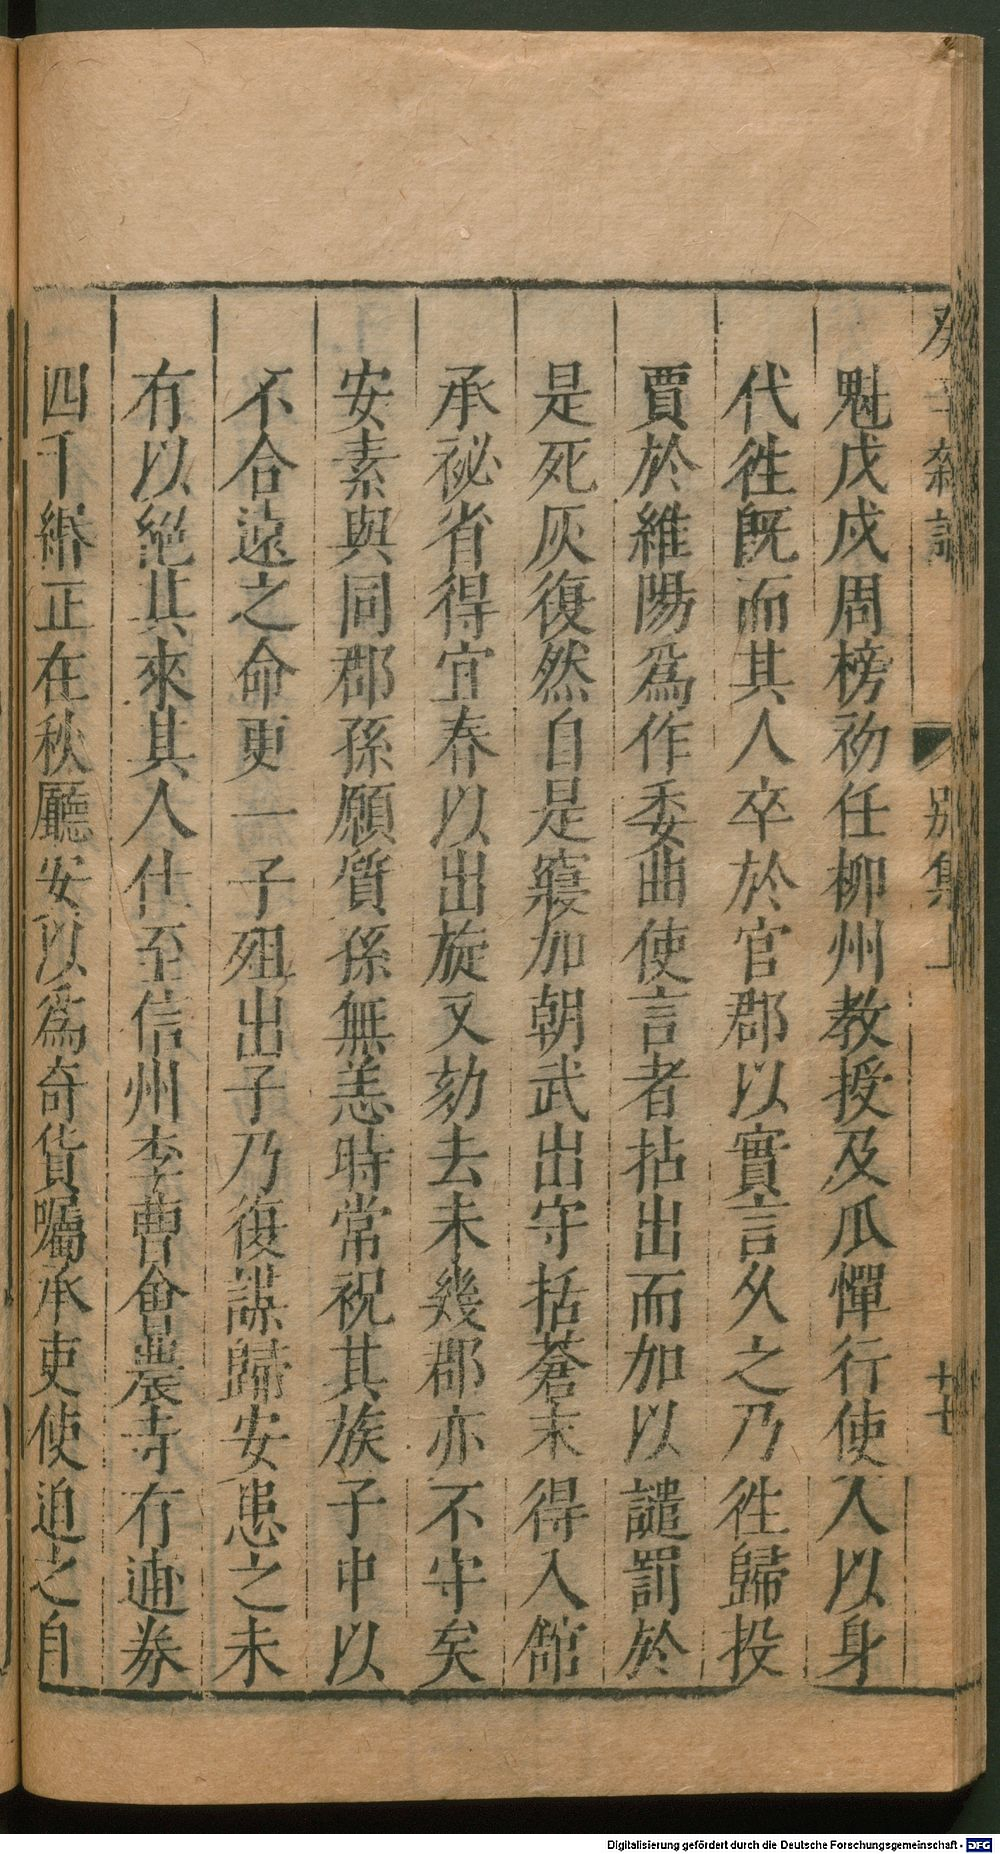 癸辛雜識 別集上 十七
魁戊戌周榜初任柳州教授及瓜憚行使人以身
代徃旣而其人卒於官郡以實言久之乃徃歸投
賈於維陽爲作委曲使言者拈出而加以譴罰於
是死灰復然自是寖加朝武出守括蒼末得入館
承祕省得宜春以出旋又劾去未幾郡亦不守矣
安素與同郡孫願質孫無恙時常祝其族子中以
不合遠之命更一子殂出子乃復謀歸安患之未
有以絕其來其人仕至信州李曹會農寺有逋券
四千緡正在秋廳安以爲奇貨囑承吏使迫之自
Digitalisierung gefördert durch die Deutsche Forschungsgemeinschaft - DFG